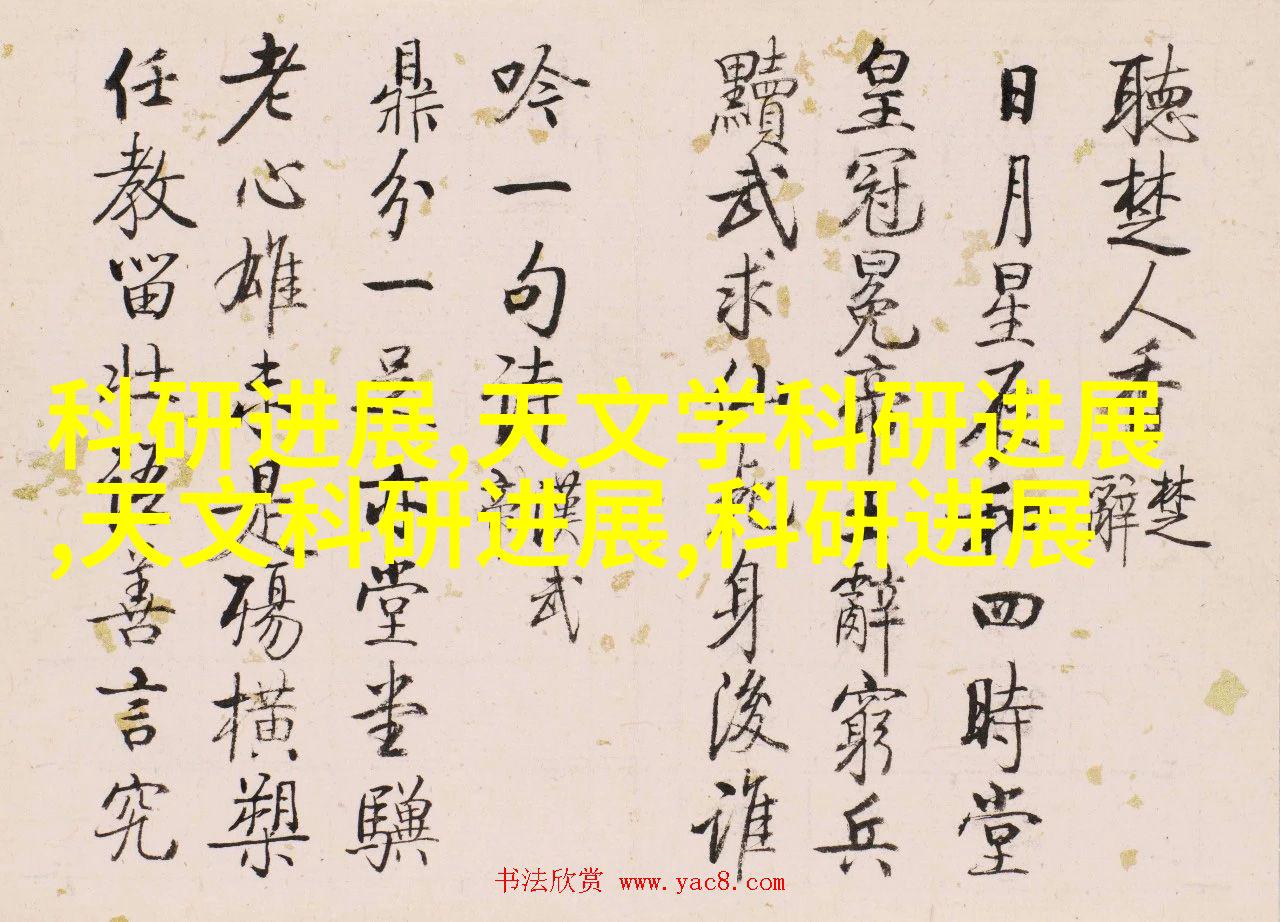 聽楚人重楚辭
日月星辰和四時堂
皇冠冕帝王辭窮兵
黷武求仙身後誰
吟一句詩漢武帝
鼎分一足亦堂堂驥
老心雄未是殤橫槊
任教留壯語善言究
科研进展,天文学科研进展
,天文科研进展,科研进展
书法欣赏 www.yac8.com